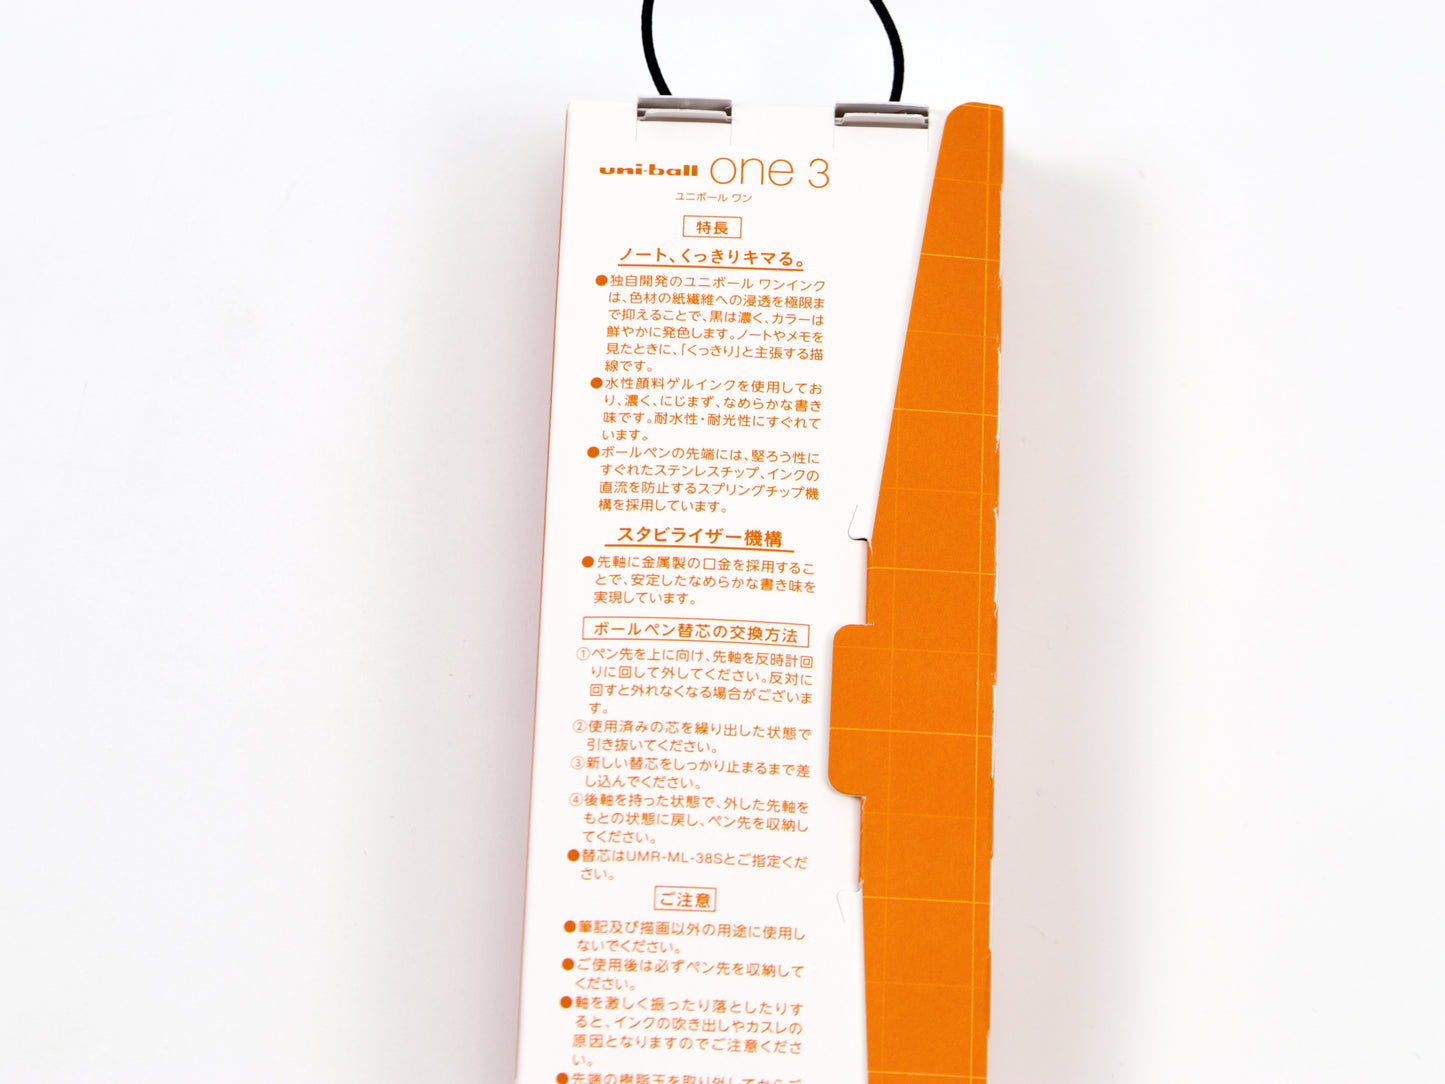 uni-ball one 3
ユニボール ワン
特長
ノート、くっきりキマる。
●独自開発のユニボール ワンインク
は、色材の紙繊維への浸透を極限ま
で抑えることで、黒は濃く、カラーは
鮮やかに発色します。ノートやメモを
見たときに、「くっきり」と主張する描
線です。
●水性顔料ゲルインクを使用してお
り、濃く、にじまず、なめらかな書き
味です。耐水性・耐光性にすぐれて
います。
●ボールペンの先端には、堅ろう性に
すぐれたステンレスチップ、インクの
直流を防止するスプリングチップ機
構を採用しています。
スタビライザー機構
●先軸に金属製の口金を採用するこ
とで、安定したなめらかな書き味を
実現しています。
ボールペン替芯の交換方法
①ペン先を上に向け、先軸を反時計回
りに回して外してください。反対に
回すと外れなくなる場合がございま
す。
②使用済みの芯を繰り出した状態で
引き抜いてください。
③新しい替芯をしっかり止まるまで差
し込んでください。
④後軸を持った状態で、外した先軸を
もとの状態に戻し、ペン先を収納し
てください。
●替芯はUMR-ML-38Sとご指定くだ
さい。
ご注意
●筆記及び描画以外の用途に使用し
ないでください。
●ご使用後は必ずペン先を収納して
ください。
●軸を激しく振ったり落としたりす
ると、インクの吹き出しやカスレの
原因となりますのでご注意くださ
い。
●先端の樹脂玉を取り外してからご